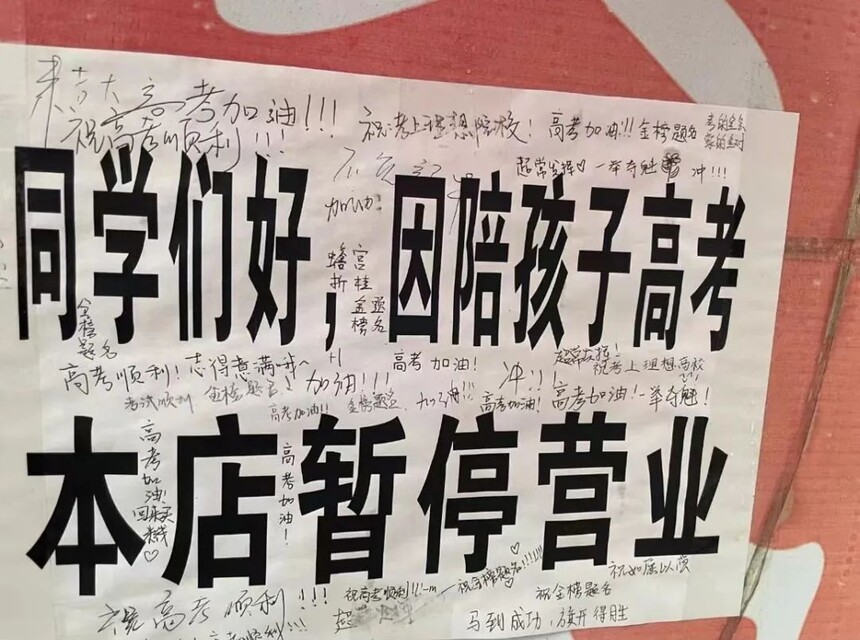 高考加油!!!
祝高考顺利!!!
祝考上理想院校! 高考加油!!! 金榜题名
超常发挥♡ 一举夺魁 冲!!!
加油!
同学们好,因陪孩子高考
蟾宫
折桂
金榜
题名
高考顺利! 志得意满哦~ +1 高考加油! 超常发挥!
祝考上理想高校
考试顺利 加油!!! 冲!!!
高考加油!! 金榜题名 加油!!! 高考加油! 高考加油! 一举夺魁!
本店暂停营业
高考加油!
高考加油!
祝高考顺利!!!
祝高考顺利!!!
祝金榜题名!!!!!!
祝金榜题名
祝如愿以偿
马到成功,旗开得胜